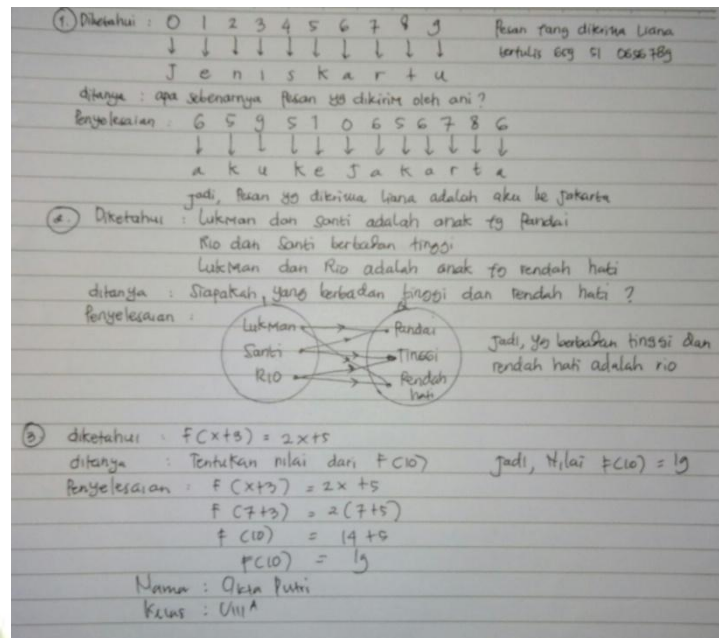 1. Diketahui : 0 1 2 3 4 5 6 7 8 9 Pesan yang dikirim Liana
↓ ↓ ↓ ↓ ↓ ↓ ↓ ↓ ↓ ↓ tertulis 659 51 0656789
J e n i s k a r t u
ditanya : apa sebenarnya pesan yg dikirim oleh ani ?
Penyelesaian : 6 5 9 5 1 0 6 5 6 7 8 6
↓ ↓ ↓ ↓ ↓ ↓ ↓ ↓ ↓ ↓ ↓ ↓
a k u k e J a k a r t a
Jadi, Pesan yg diterima Liana adalah aku ke Jakarta
2. Diketahui : Lukman dan Santi adalah anak yg Pandai
Rio dan Santi berbadan tinggi
Lukman dan Rio adalah anak yg rendah hati
ditanya : Siapakah, yang berbadan tinggi dan rendah hati ?
Penyelesaian :
Lukman Pandai
Santi Tinggi
Rio Rendah hati
Jadi, yg berbadan tinggi dan
rendah hati adalah rio
3 diketahui : F(x+3) = 2x+5
ditanya : Tentukan nilai dari F(10) Jadi, Nilai F(10) = 19
Penyelesaian : F (x+3) = 2x +5
F (7+3) = 2(7+5)
F (10) = 14 +5
F(10) = 19
Nama : Okta Putri
Kelas : VIII A